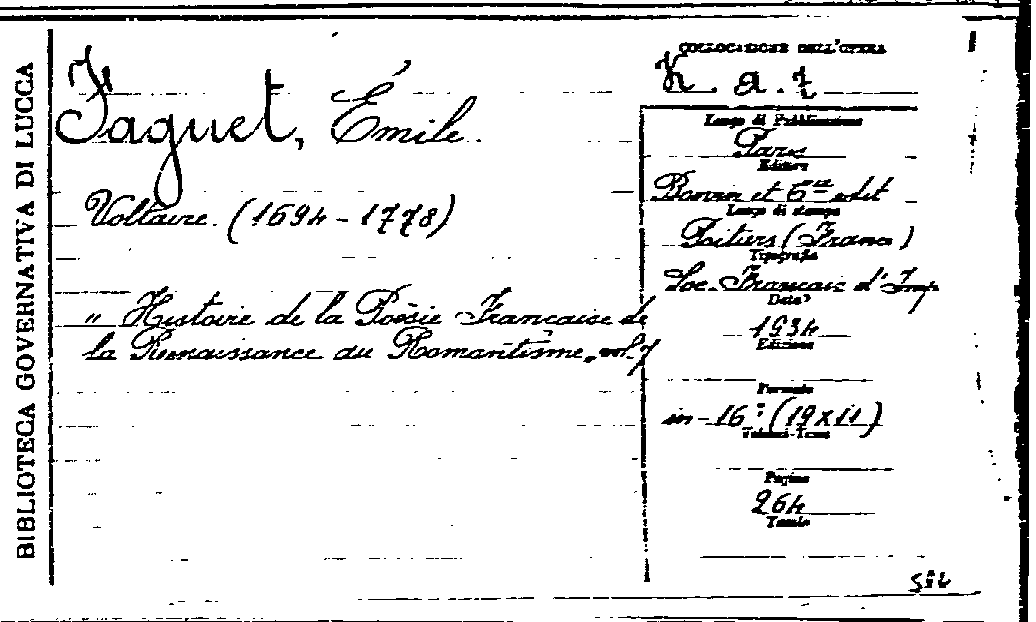 BIBLIOTECA GOVERNATIVA DI LUCCA
Faguet, Émile.
Voltaire. (1694-1778)
" Histoire de la Poèsie Francaise de
la Renaissance au Romantisme „ vol. 7
COLLOCAZIONE DELL'OPERA
Luogo di Pubblicazione
Paris
Editore
Boivin et C.ie edit
Luogo di stampa
Poitiers (France)
Tipografia
Soc. Francaise d'Imp
Data
1934
Edizione
Formato
in-16° (19x11)
Volumi-Tomi
Pagine
264
Tavole